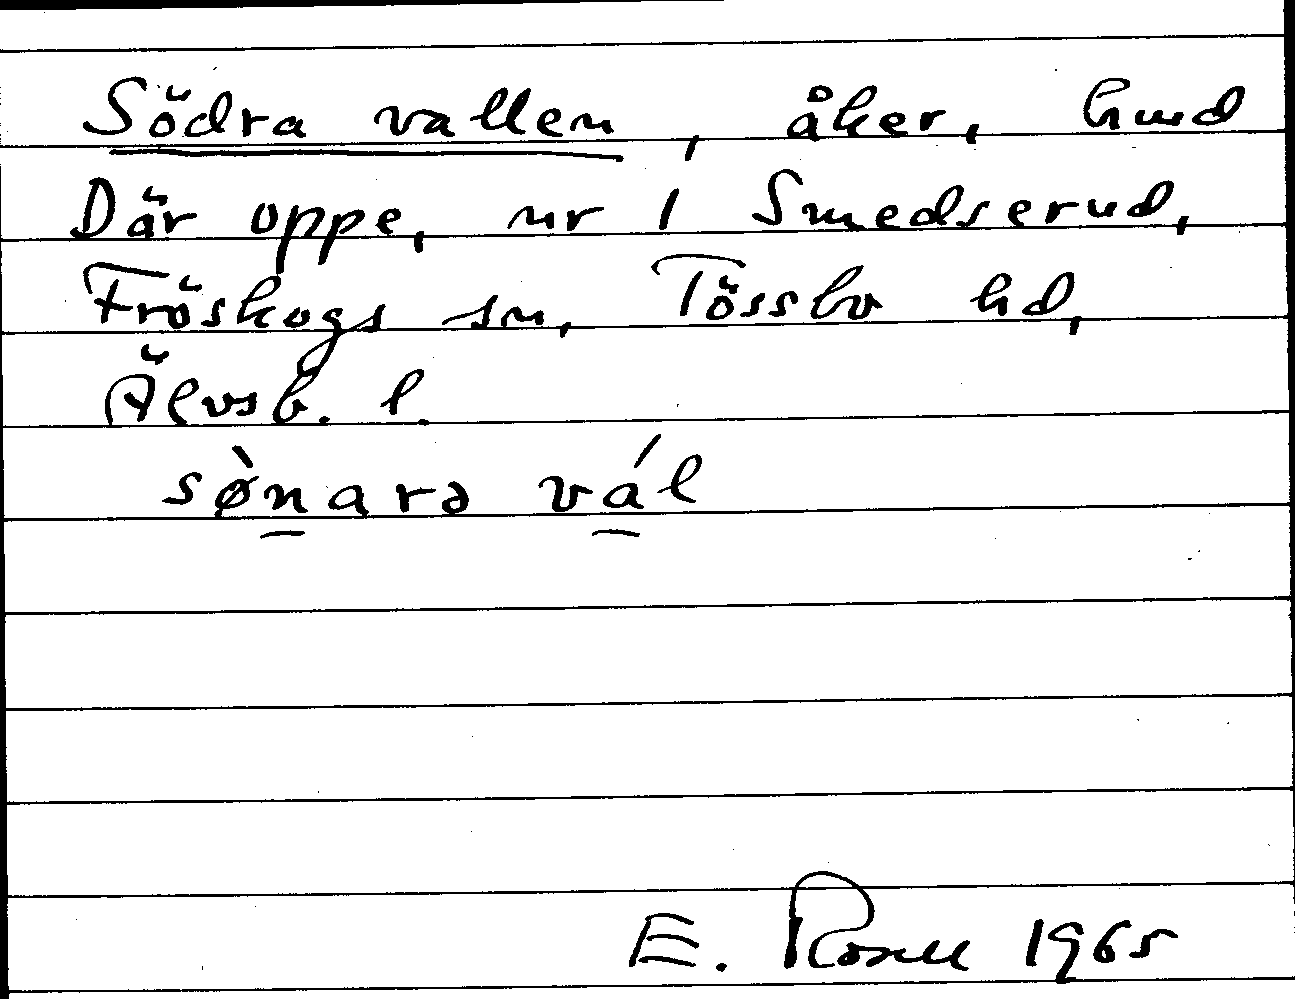 Södra vallen, åker, hmd
Där oppe, nr 1 Smedserud,
Fröskogs sn, Tössbo hd,
Älvsb. l.
sø̀narə vál
E. Rosell 1965